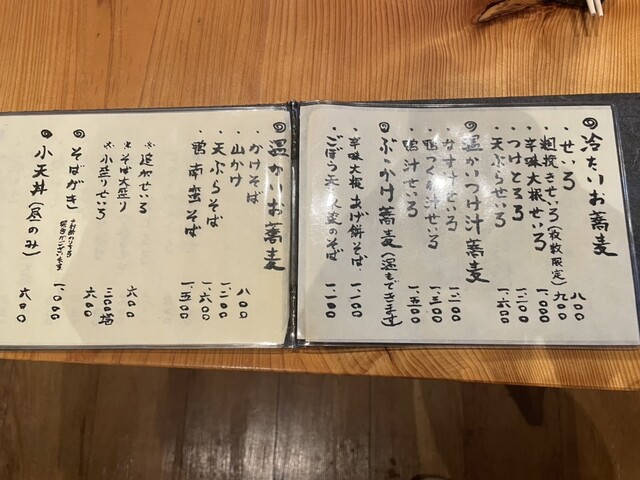 冷たいお蕎麦
・せいろ 八〇〇
・粗挽きせいろ(枚数限定) 九〇〇
・辛味大根せいろ 一、〇〇〇
・つけとろろ 一、一〇〇
・天ぷらせいろ 一、六〇〇
温かいつけ汁蕎麦
・なす汁せいろ 一、一〇〇
・鴨つくね汁せいろ 一、三〇〇
・鴨汁せいろ 一、五〇〇
ぶっかけ蕎麦(温もできます)
・辛味大根あげ餅そば 一、一〇〇
・ごぼう天
のそば 一、一〇〇
温かいお蕎麦
・かけそば 八〇〇
・山かけ 一、一〇〇
・天ぷらそば 一、六〇〇
・鴨南蛮そば 一、五〇〇
※追加せいろ 六〇〇
※そば大盛り 三〇〇増
※小盛りせいろ 六〇〇
そばがき 一、〇〇〇
小天丼(昼のみ) 六〇〇